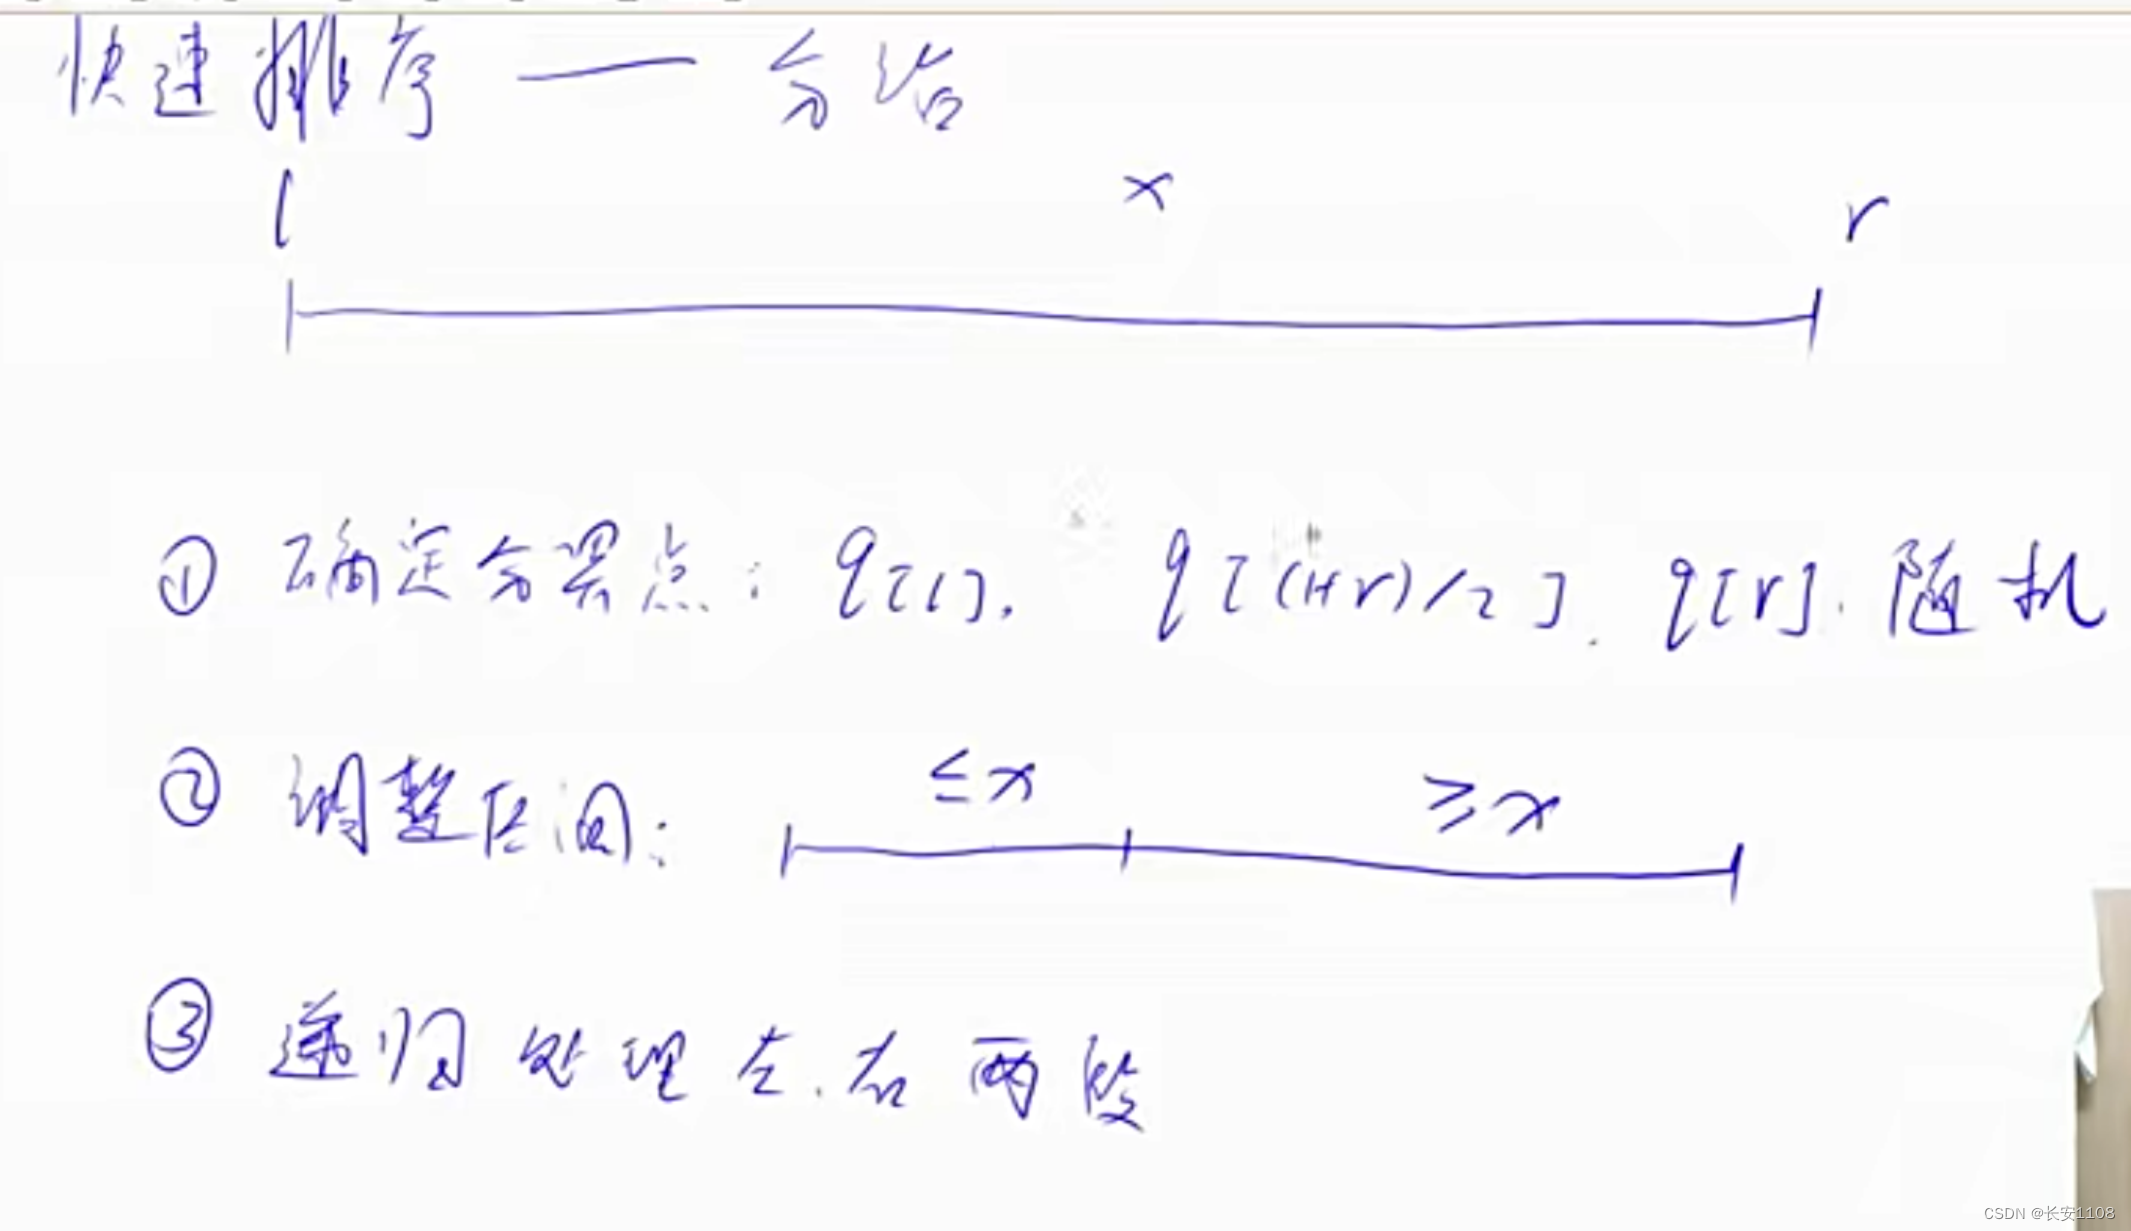 快速排序 —— 分治
l x r
① 确定分界点: q[l]. q[(l+r)/2]. q[r]. 随机
② 调整区间: ≤x ≥x
③ 递归处理左、右两段
CSDN @长安1108